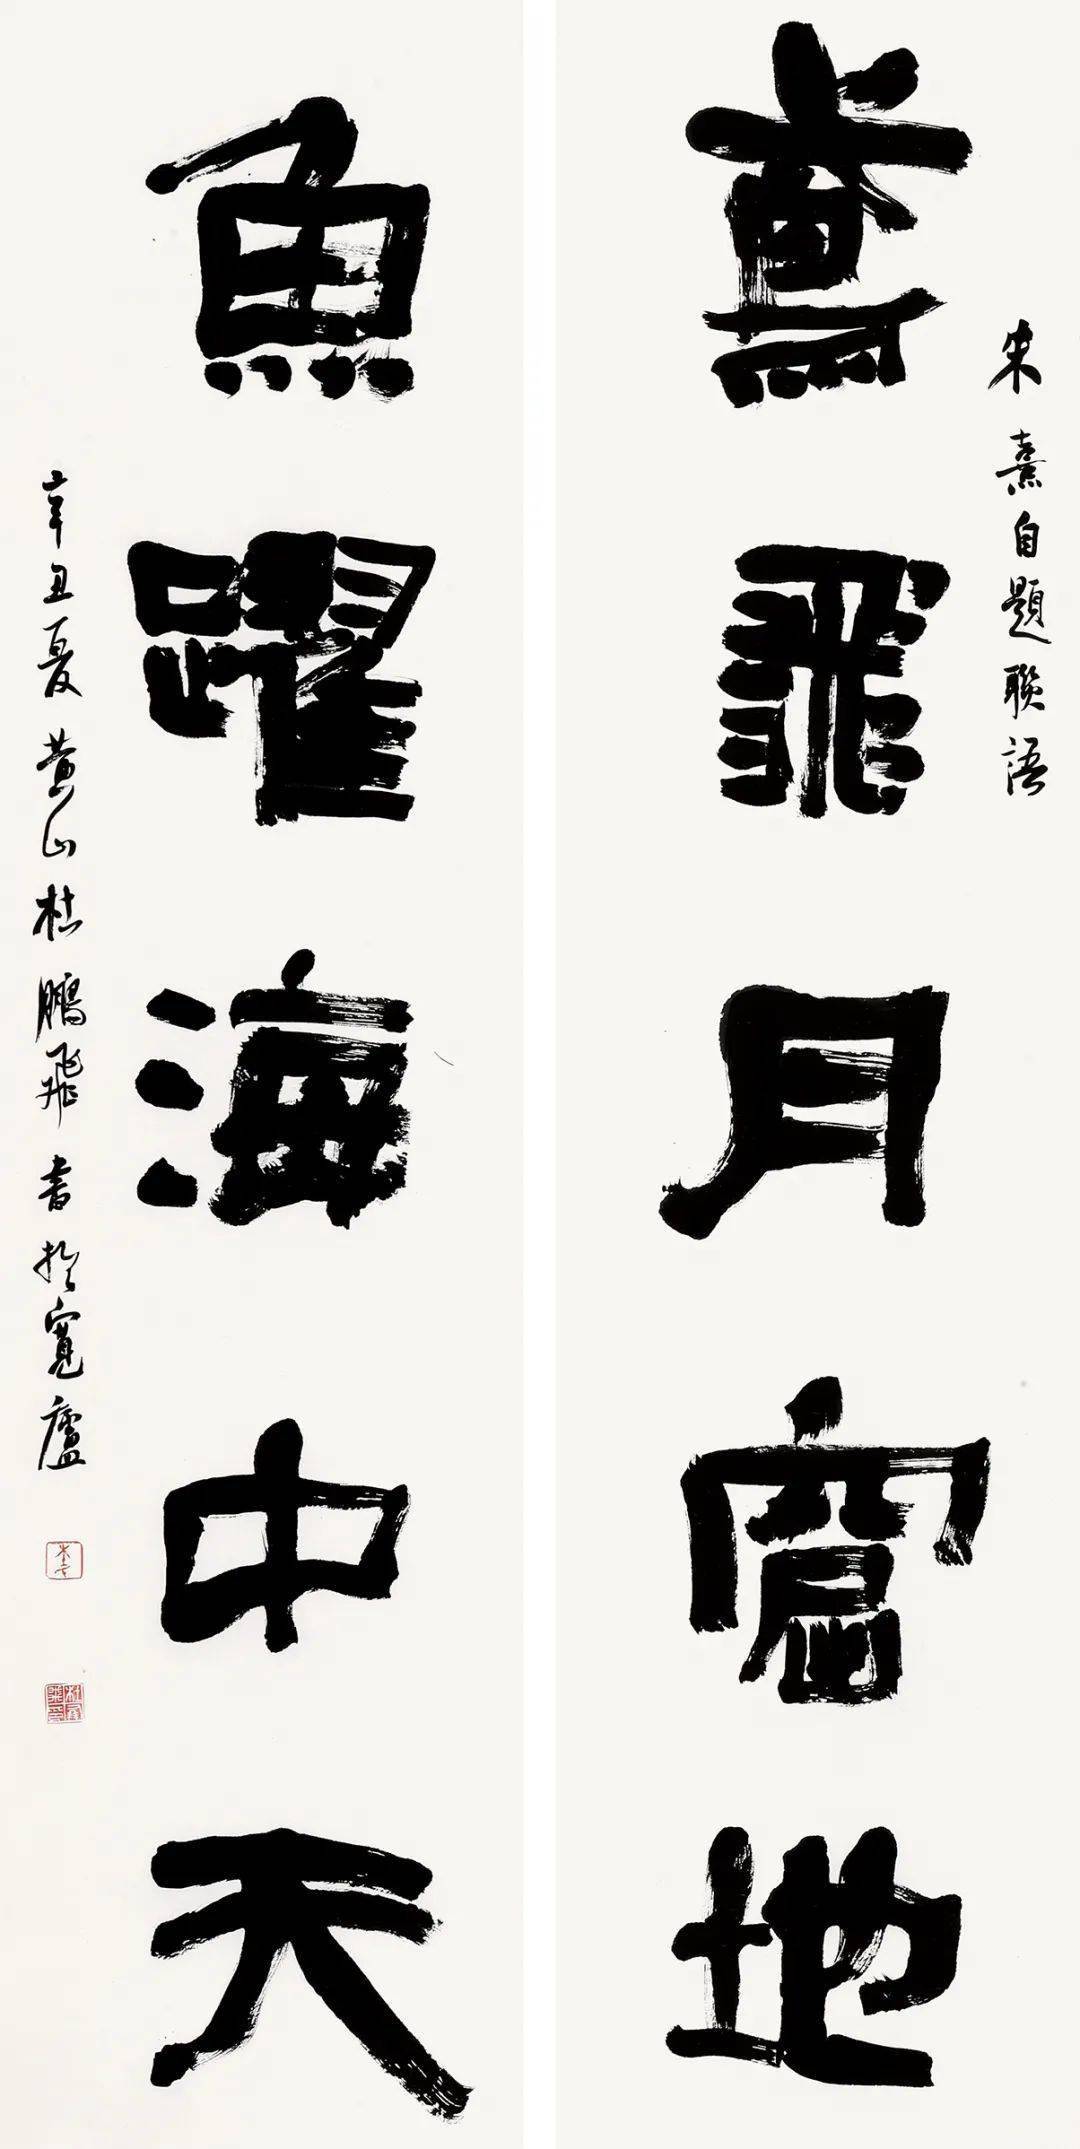 朱熹自題聯語
鳶飛月窟地
魚躍海中天
辛丑夏黃山杜鵬飛書於寬廬